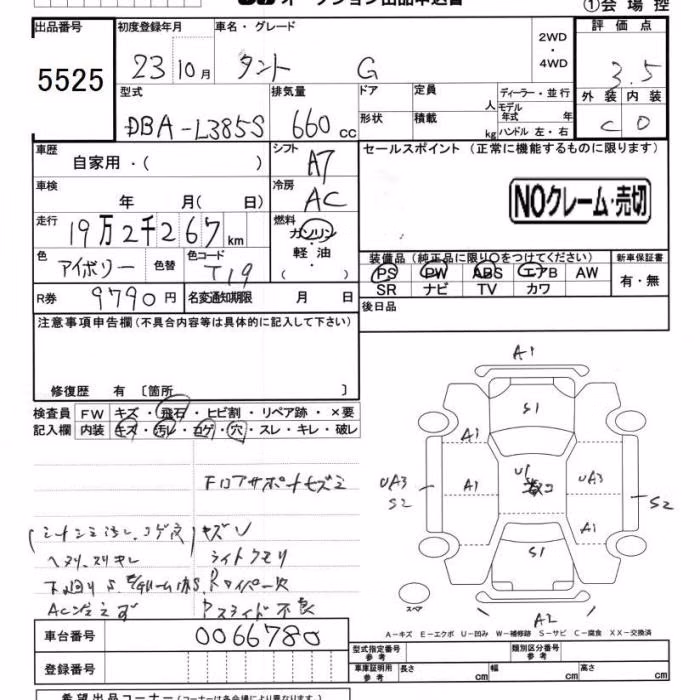 オークション出品申込書
①会場控
出品番号 初度登録年月 車名・グレード 評価点
5525
23 10月 タント G
2WD
・
4WD
3.5
型式 排気量 ドア 定員 人 ディーラー・並行
モデル年式 年
外装 内装
DBA-L385S 660 cc
形状 積載 kg ハンドル 左・右
C D
車歴 シフト セールスポイント (正常に機能するものに限ります)
自家用・( ) A7
車検 冷房
年 月( 日) AC
NOクレーム・売切
走行 燃料
19万2千267km ガソリン
軽油・
( )
色 色替 色コード
アイボリー T19
装備品 (純正品に限り○をつけてください) 新車保証書
PS PW ABS エアB AW 有・無
SR ナビ TV カワ
R券 9790円 名変通知期限 月 日
後日品
注意事項申告欄(不具合内容等は具体的に記入して下さい)
修復歴 有 〔箇所 〕
検査員 FW キズ・飛石・ヒビ割・リペア跡・×要
記入欄 内装 キズ・汚レ・コゲ・穴・スレ・キレ・破レ
キズ
ライトクモリ
Pスライド不良
A1
S1
A1
U1
UA3
S2
A1
UA3
S2
A1
S1
A2
スペア
A-キズ E-エクボ U-凹み W-補修跡 S-サビ C-腐食 XX-交換済
車台番号 0066780
登録番号
型式指定番号 参考 類別区分番号 参考
車庫証明用 参考 長さ cm 幅 cm 高さ cm
希望出品コーナー(コーナーは各会場により異なります。)